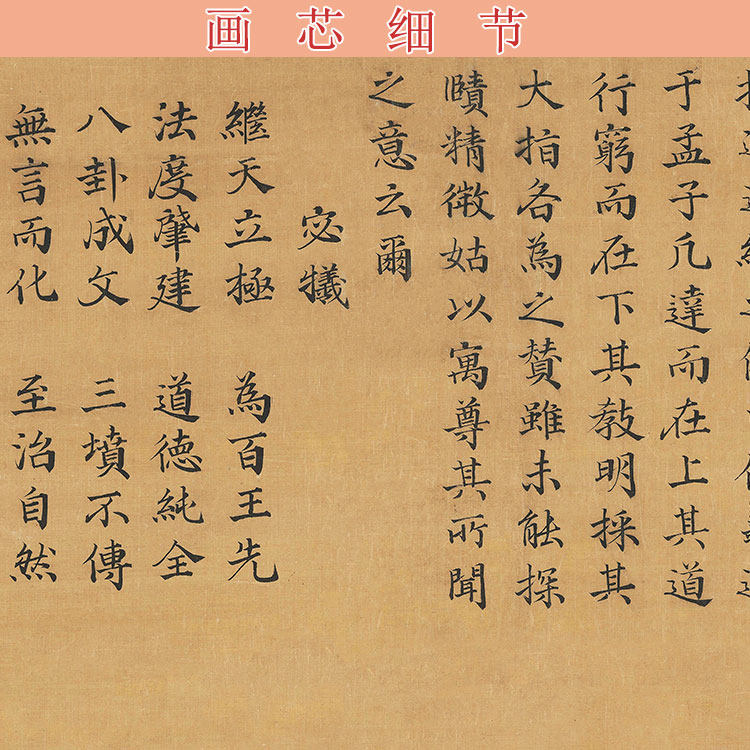 画芯细节
于孟子凢達而在上其道
行窮而在下其教明採其
大指各為之贊雖未能探
賾精微姑以寓尊其所聞
之意云爾
宓犧
繼天立極 為百王先
法度肇建 道德純全
八卦成文 三墳不傳
無言而化 至治自然